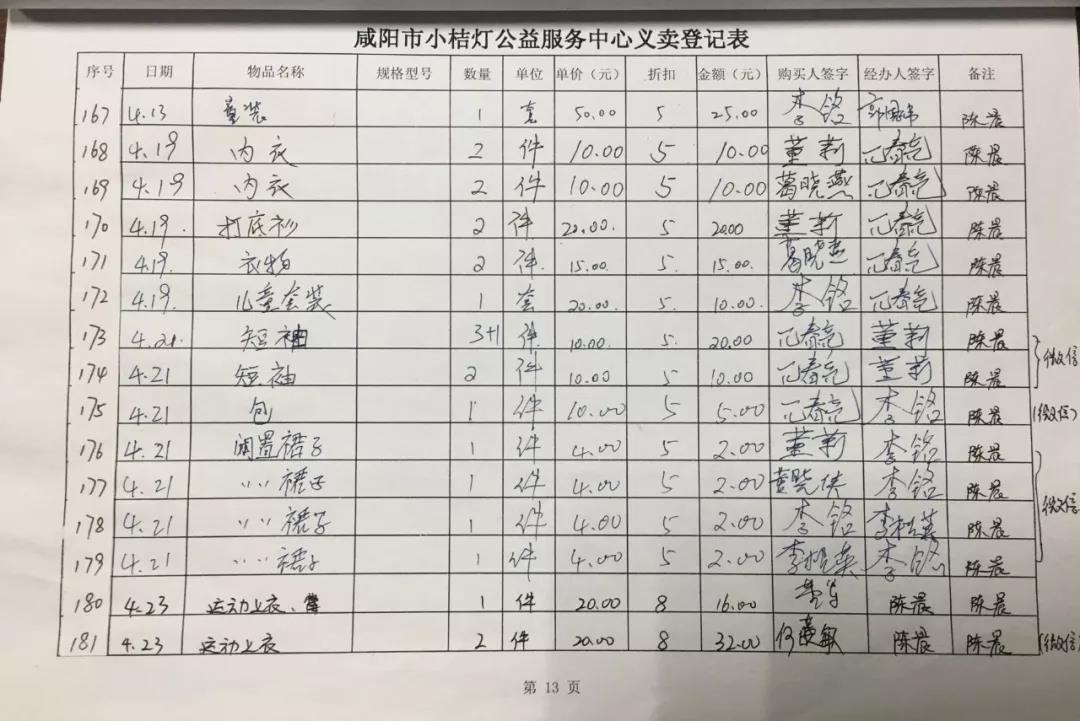 咸阳市小桔灯公益服务中心义卖登记表
序号 日期 物品名称 规格型号 数量 单位 单价（元） 折扣 金额（元） 购买人签字 经办人签字 备注
167 4.13 童装 1 套 50.00 5 25.00 李铭 陈晨
168 4.19 内衣 2 件 10.00 5 10.00 董莉 陈晨
169 4.19 内衣 2 件 10.00 5 10.00 葛晓燕 陈晨
170 4.19. 打底衫 2 件 20.00. 5 20.00 董莉 陈晨
171 4.19. 衣物 2 件. 15.00. 5. 15.00. 葛晓燕 陈晨
172 4.19. 儿童套装 1 套 20.00. 5. 10.00. 李铭 陈晨
173 4.21. 短袖 3+1 件. 10.00. 5. 20.00 董莉 陈晨
174 4.21 短袖 2 件 10.00. 5 10.00 董莉 陈晨 微信
175 4.21 包 1 件 10.00 5 5.00 李铭 陈晨 (微信)
176 4.21 闲置裙子 1 件 4.00 5 2.00 董莉 李铭 陈晨
177 4.21 〃〃裙子 1 件 4.00 5 2.00 李铭 陈晨
178 4.21 〃〃裙子 1 件 4.00 5 2.00 李铭 陈晨 微信
179 4.21 〃〃裙子 1 件 4.00 5 2.00 李铭 陈晨
180 4.23 运动上衣、 1 件 20.00 8 16.00 陈晨 陈晨
181 4.23 运动上衣 2 件 20.00 8 32.00 陈晨 陈晨 (微信)
第 13 页